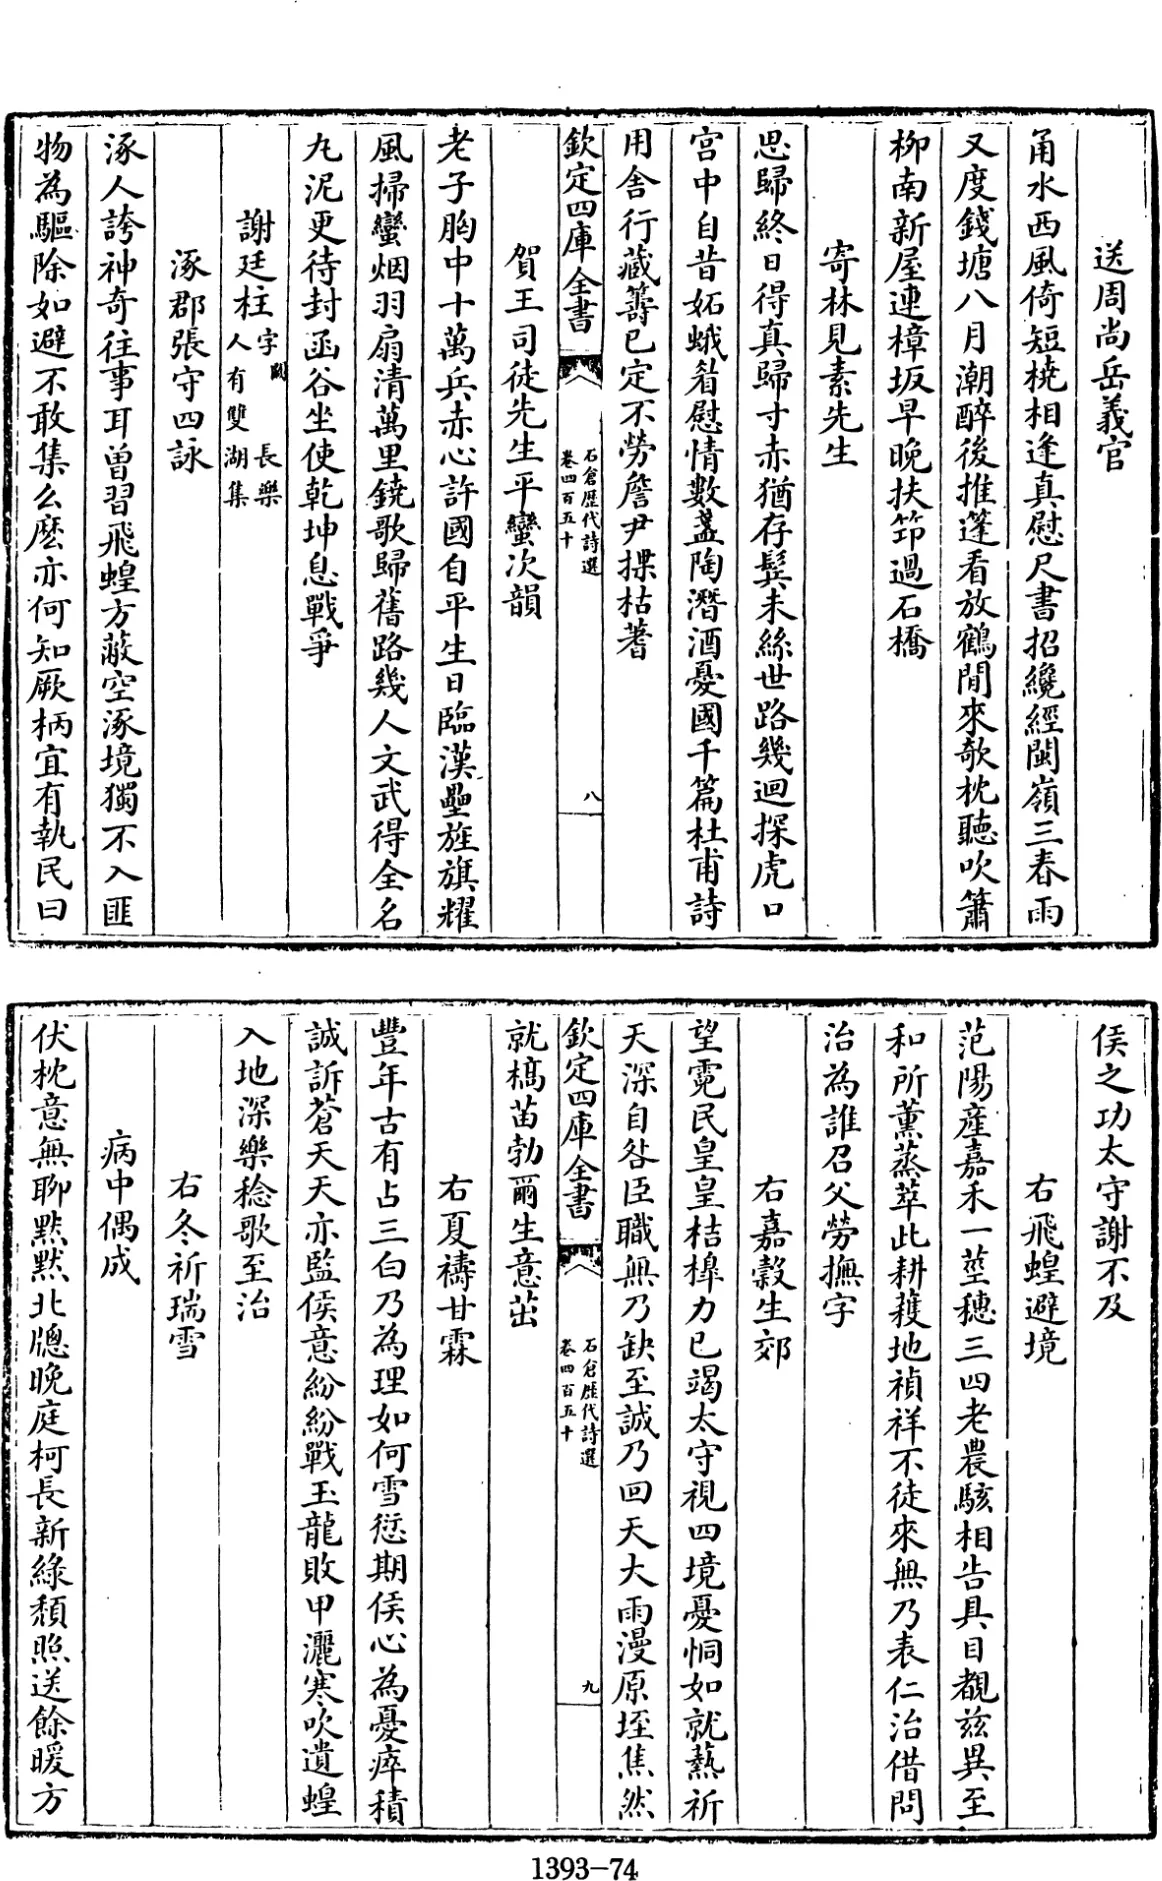 送周尚岳義官
甬水西風倚短橈相逢真慰尺書招纔經閩嶺三春雨
又度錢塘八月潮醉後推篷看放鶴閒來欹枕聽吹簫
柳南新屋連樟坂早晚扶笻過石橋
寄林見素先生
思歸終日得真歸寸赤猶存鬂未絲世路幾迴探虎口
宫中自昔妬蛾眉慰情數盞陶潛酒憂國千篇杜甫詩
用舍行藏籌已定不勞詹尹揲枯蓍
欽定四庫全書
石倉歷代詩選
卷四百五十
八
賀王司徒先生平蠻次韻
老子胸中十萬兵赤心許國自平生日臨漢壘旌旗耀
風掃蠻烟羽扇清萬里鐃歌歸舊路幾人文武得全名
丸泥更待封函谷坐使乾坤息戰爭
謝廷柱字闕長樂
人有雙湖集
涿郡張守四詠
涿人誇神奇往事耳曾習飛蝗方蔽空涿境獨不入匪
物為驅除如避不敢集么麽亦何知厥柄宜有執民曰
侯之功太守謝不及
右飛蝗避境
范陽産嘉禾一莖穗三四老農駭相告具目覩兹異至
和所薰蒸萃此耕穫地禎祥不徒來無乃表仁治借問
治為誰召父勞撫字
右嘉穀生郊
望霓民皇皇桔橰力已竭太守視四境憂恫如就爇祈
天深自咎臣職無乃缺至誠乃回天大雨漫原垤焦然
欽定四庫全書
石倉歷代詩選
卷四百五十
九
就槁苗勃爾生意茁
右夏禱甘霖
豐年古有占三白乃為理如何雪愆期侯心為憂瘁積
誠訴蒼天天亦監侯意紛紛戰玉龍敗甲灑寒吹遺蝗
入地深樂稔歌至治
右冬祈瑞雪
病中偶成
伏枕意無聊黙黙北牕晚庭柯長新綠頹照送餘暖方
1393-74